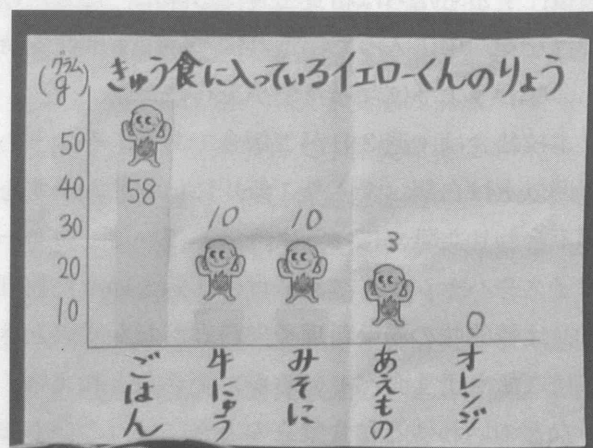 きゅう食に入っているイエローくんのりょう
(グラム g)
50
40
30
20
10
58
10
10
3
0
ごはん
牛にゅう
みそに
あえもの
オレンジ